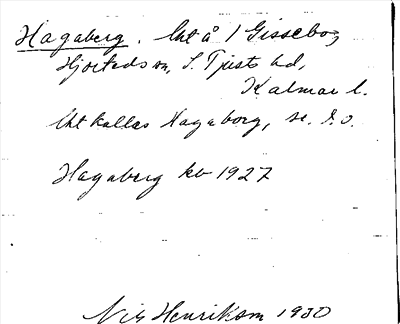 Hagaberg. Lht å 1 Gissebo,
Hjorteds sn, S. Tjusts hd,
Kalmar l.
Lht kallas Hagaborg, se d. o.
Hagaberg kb 1927
Nils Henrikson 1930